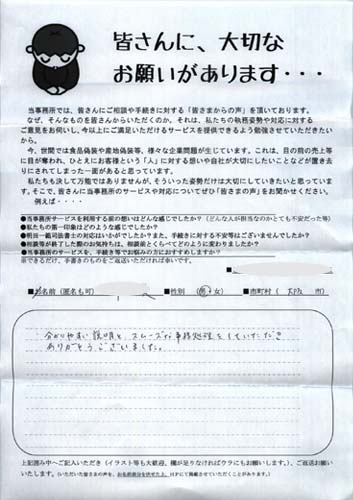 皆さんに、大切な
お願いがあります・・・
当事務所では、皆さんにご相談や手続きに対する「皆さまからの声」を頂いております。
なぜ、そんなものを皆さんからいただくのか。それは、私たちの執務姿勢や対応に対する
ご意見をお伺いし、今以上にご満足いただけるサービスを提供できるよう勉強させていただきたい
から。
今、世間では食品偽装や産地偽装等、様々な企業問題が生じています。これは、目の前の売上等
に目が奪われ、ひとえにお客様という「人」に対する想いや自分が大切にしたいことなどが置き去
りにされてしまった一面があると思っています。
私たちも決して万能ではありませんが、そういった姿勢だけは大切にしていきたいと思っていま
す。そこで、皆さんに当事務所のサービスや対応についてぜひ「皆さまの声」をお聞かせください。
例えば・・・・
●当事務所サービスを利用する前の想いはどんな感じでしたか？（どんな人が担当なのかとても不安だった等）
●私たちの第一印象はどのような感じでしたか？
●相談等が終了した際のお気持ちは、相談前とくらべてどのように変わりましたか？
●当事務所のサービスを、手続き等でお悩みの方におすすめしますか？
※できるだけ、手書きのものをご返送いただければ幸いです。
■お名前（匿名も可） ■性別（男・女） ■市町村（大阪 市）
分かりやすい説明と、スムーズな事務処理をしていただき
ありがとうございました。
上記囲み中へご記入いただき（イラスト等も大歓迎、欄が足りなければウラにもお願いします。）、ご返送お願
いいたします。（いただいた皆さまの声を、お名前部分を伏せた上、HPにて掲載させていただくことがあります。）